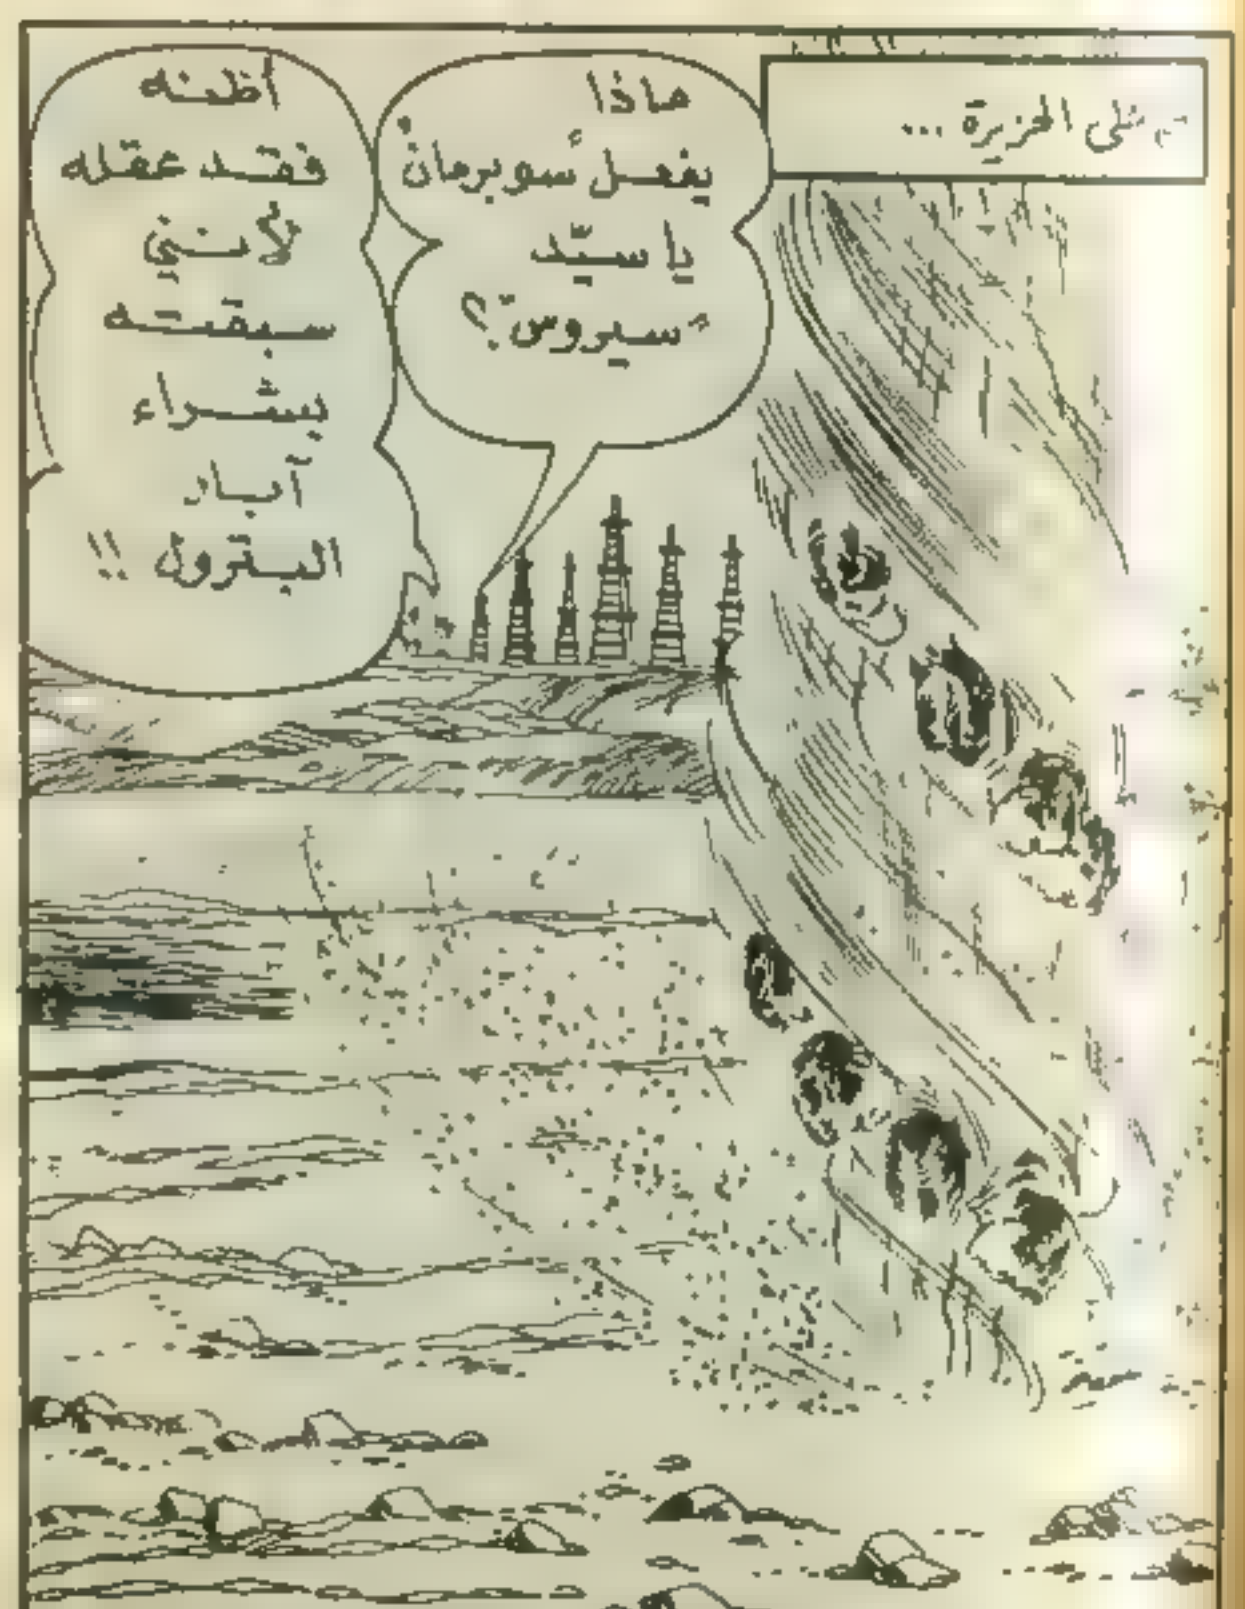 على الجزيرة ...
ماذا
يفعل "سوبرمان"
يا سيّد
"سيروس"؟
أظنه
فقد عقله
لأنني
سبقته
بشراء
آبار
البترول !!